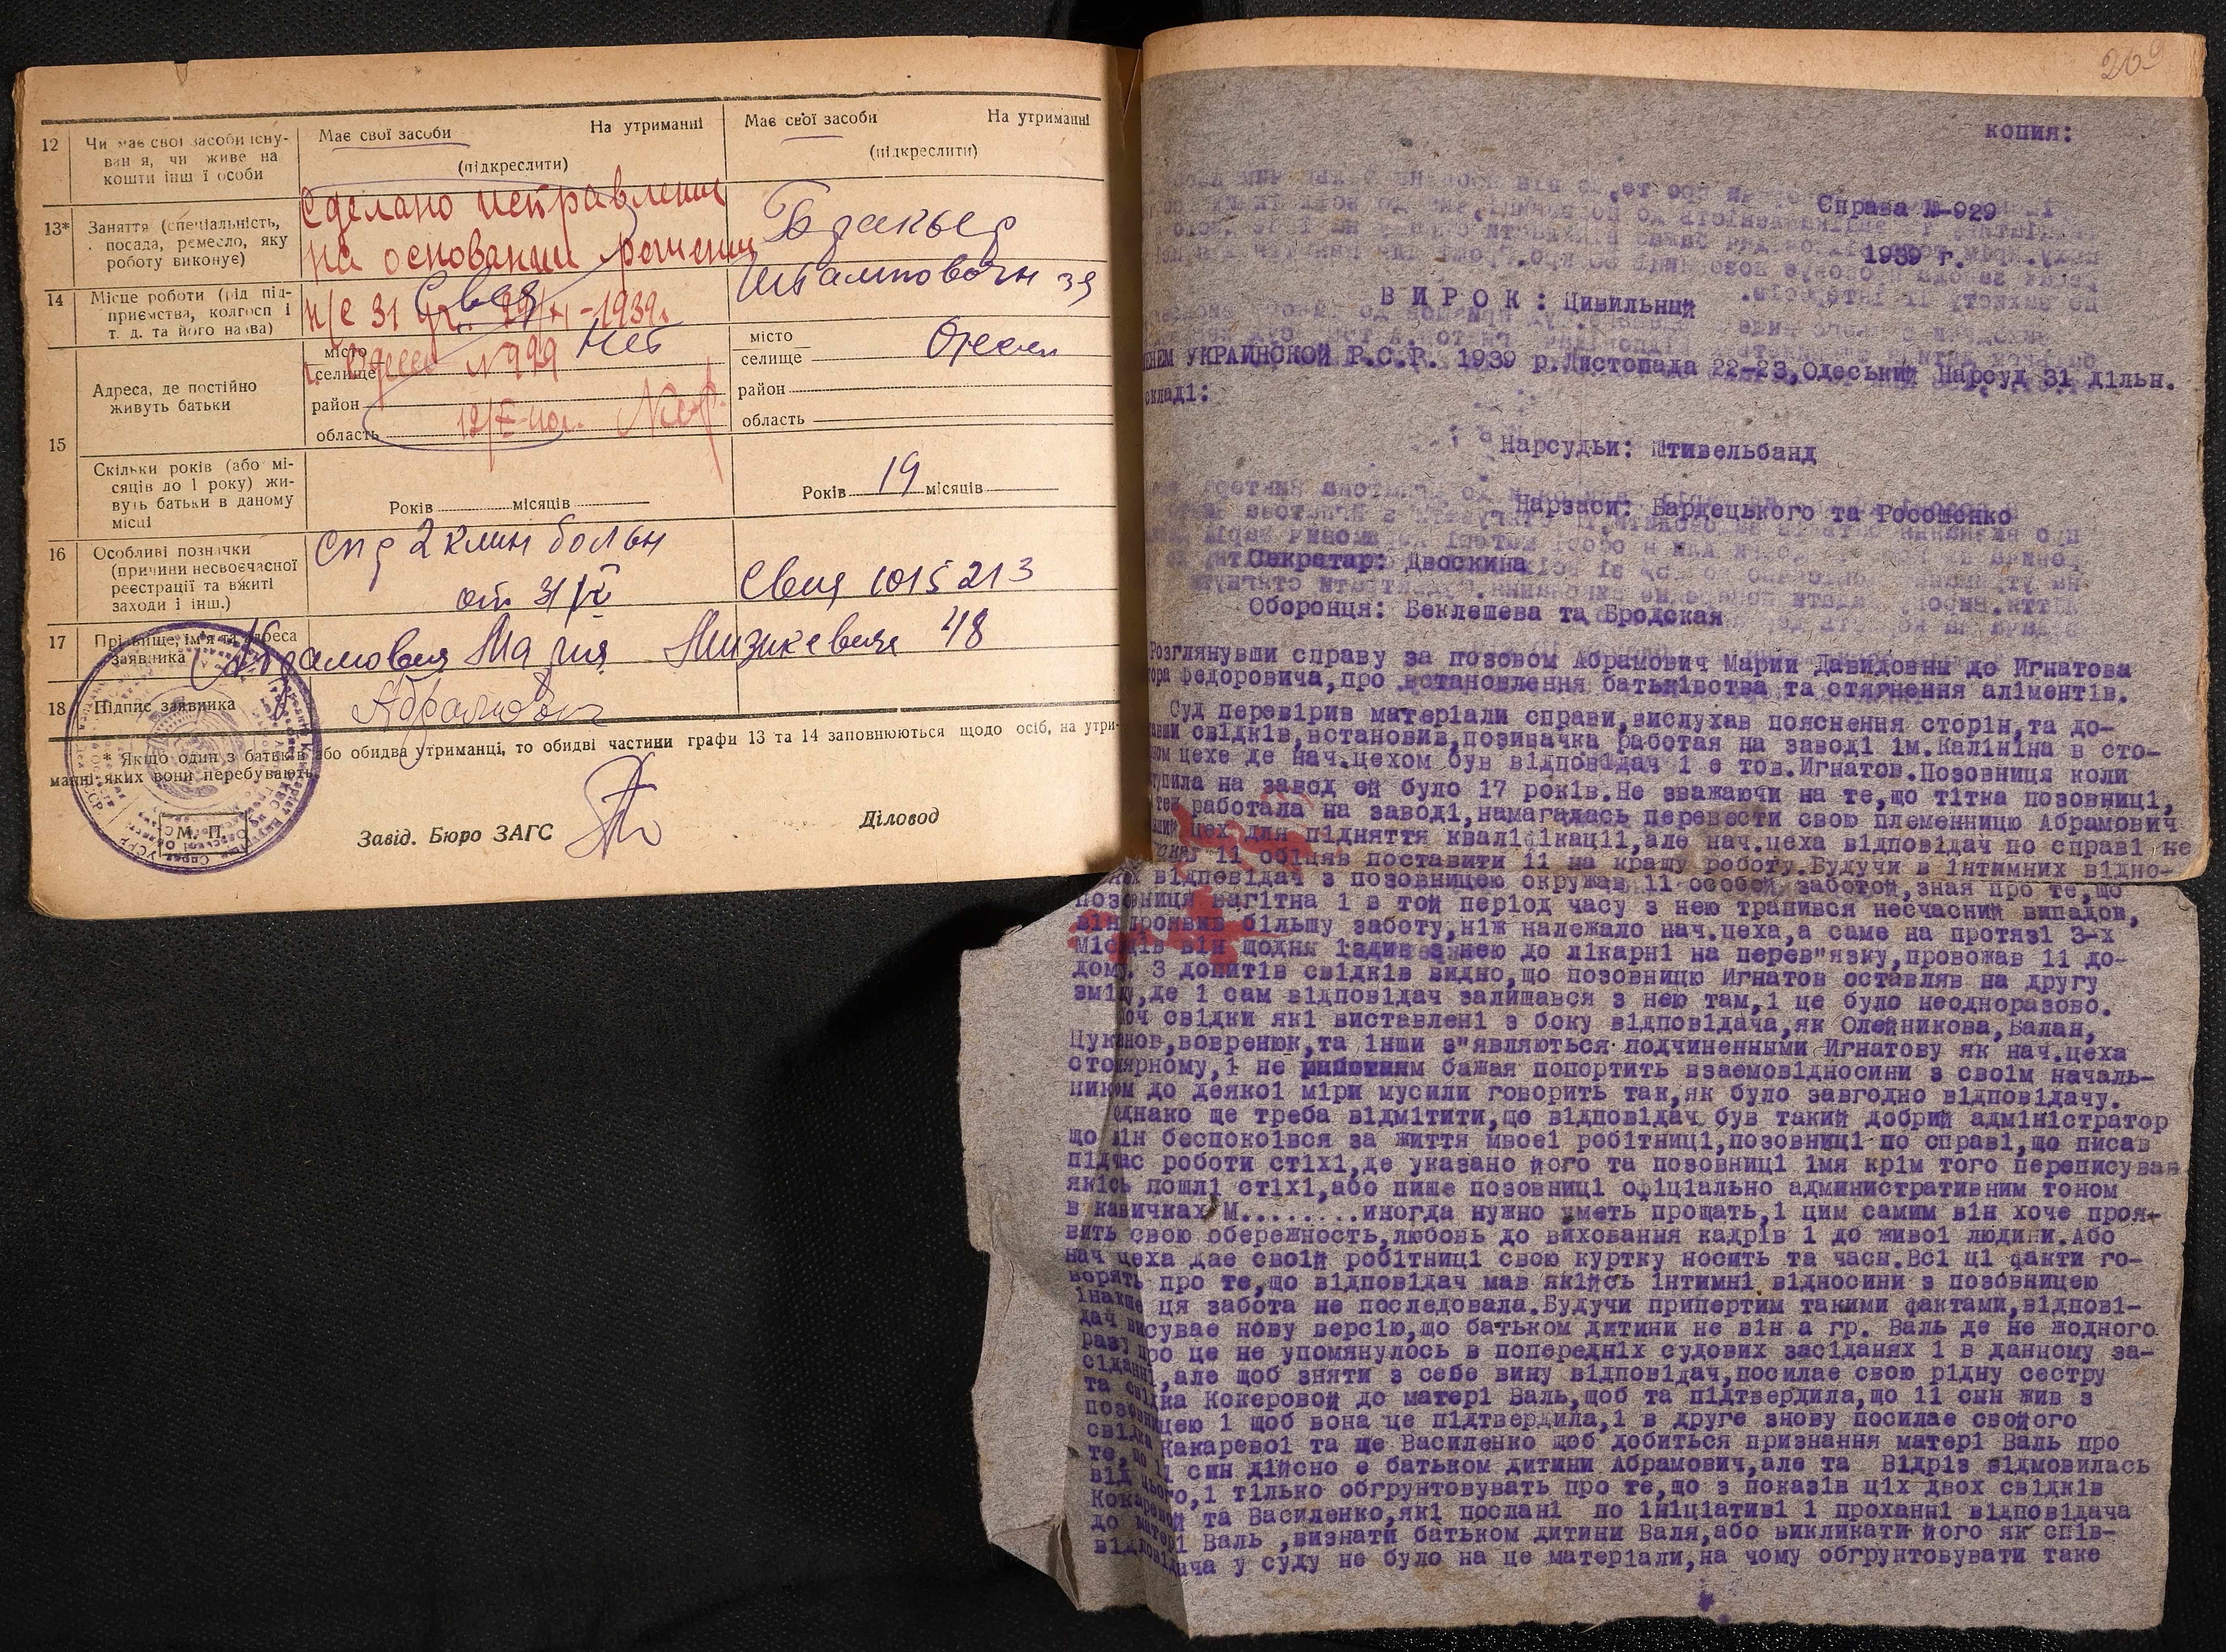 12
Чи має свої засоби існу-
ван я, чи живе на
кошти інш ї особи
Має свої засоби На утриманні
(підкреслити)
Має свої засоби На утриманні
(підкреслити)
13*
Заняття (спеціальність,
посада, ремесло, яку
роботу виконує)
Сделано исправление
на основании решения
н/с 31 уч. 1939г.
г. Одессы №929
Бракьер
14
Місце роботи (рід під-
приємства, колгосп і
т. д. та його назва)
Нет
15
Адреса, де постійно
живуть батьки
місто
селище
район
область
місто
селище Одесса
район
область
Скільки років (або мі-
сяців до 1 року) жи-
вуть батьки в даному
місці
Років місяців
Років 19 місяців
16
Особливі позначки
(причини несвоєчасної
реєстрації та вжиті
заходи і інш.)
спр 2 клин больн
от 31/V
1015213
17
Прізвище, ім'я та адреса
заявника
Абрамович Мария 48
18
Підпис заявника
Абрамович
* Якщо один з батьків або обидва утриманці, то обидві частини графи 13 та 14 заповнюються щодо осіб, на утри-
манні яких вони перебувають.
М. П.
Завід. Бюро ЗАГС
Діловод
копия:
Справа №-929
1939 г.
ВИРОК: Цивильный
ЕНЕМ УКРАИНСКОЙ Р.С.Р. 1939 р.Листопада 22-23,Одеський Нарсуд 31 дільн.
складі:
Нарсудьи: Штивельбанд
Нарзаси: Бардецького та Росошенко
Секретар: Двоскина
Оборонця: Беклешева та Бродская
Розглянувши справу за позовом Абрамович Марии Давидовны до Игнатова
тора Федоровича,про встановлення батьківства та стягнення аліментів.
Суд перевірив матеріали справи,вислухав пояснення сторін,та до-
свідків,встановив,позивачка работая на заводі ім.Калініна в сто-
ном цехе де нач.цехом був відповідач і е тов.Игнатов.Позовниця коли
ступила на завод ей було 17 років.Не зважаючи на те,що тітка позовниці,
работала на заводі,намагалась перевести свою племенницю Абрамович
цех для підняття кваліфікації,але нач.цеха відповідач по справі не
іі обіцяв поставити іі на кращу роботу.Будучи в інтимних відно-
відповідач з позовницею окружав іі особой заботой,зная про те,що
позовниця вагітна і в той період часу з нею трапився несчасний випадок,
він проявив більшу заботу,ніж належало нач.цеха,а саме на протязі 3-х
місяців він щодня іздив з нею до лікарні на перев"язку,провожав іі до-
дому. З допитів свідків видно,що позовницю Игнатов оставляв на другу
зміну,де і сам відповідач залишався з нею там,і це було неодноразово.
Хоч свідки які виставлені з боку відповідача,як Олейникова,Балан,
Цуканов,вовренюк,та інши з"являються подчиненными Игнатову як нач.цеха
столярному,і не бажая попортить взаемовідносини з своім началь-
ником до деякоі міри мусили говорить так,як було завгодно відповідачу.
Однако ще треба відмітити,що відповідач був такий добрий адміністратор
що він беспокоівся за життя мвоеі робітниці,позовниці по справі,що писав
підчас роботи стіхі,де указано його та позовниці імя крім того переписував
якісь пошлі стіхі,або пише позовниці офіціально административним тоном
в кавичках М........иногда нужно уметь прощать,і цим самим він хоче проя-
вить свою обережность,любовь до виховання кадрів і до живоі людини.Або
нач цеха дае своій робітниці свою куртку носить та часи.Всі ці факти го-
ворять про те,що відповідач мав якійсь інтимні відносини з позовницею
інакше ця забота не последовала.Будучи припертим такими фактами,відпові-
дач висувае нову версію,що батьком дитини не він а гр. Валь де не жодного
разу про це не упомянулось в попередніх судових засіданях і в данному за-
сіданні,але щоб зняти з себе вину відповідач,посилае свою рідну сестру
та свідка Кокеровой до матері Валь,щоб та підтвердила,що іі син жив з
позовницею і щоб вона це підтвердила,і в друге знову посилае свойого
свідка Какаревоі та ще Василенко щоб добиться признання матері Валь про
те,що іі син дійсно е батьком дитини Абрамович,але та Відріз відмовилась
від цього,і тілько обгрунтовувать про те,що з показів ціх двох свідків
Кокаревой та Василенко,які послані по ініціативі і проханні відповідача
до матері Валь ,визнати батьком дитини Валя,або викликати його як спів-
відповідача у суду не було на це матеріали,на чому обгрунтовувати таке